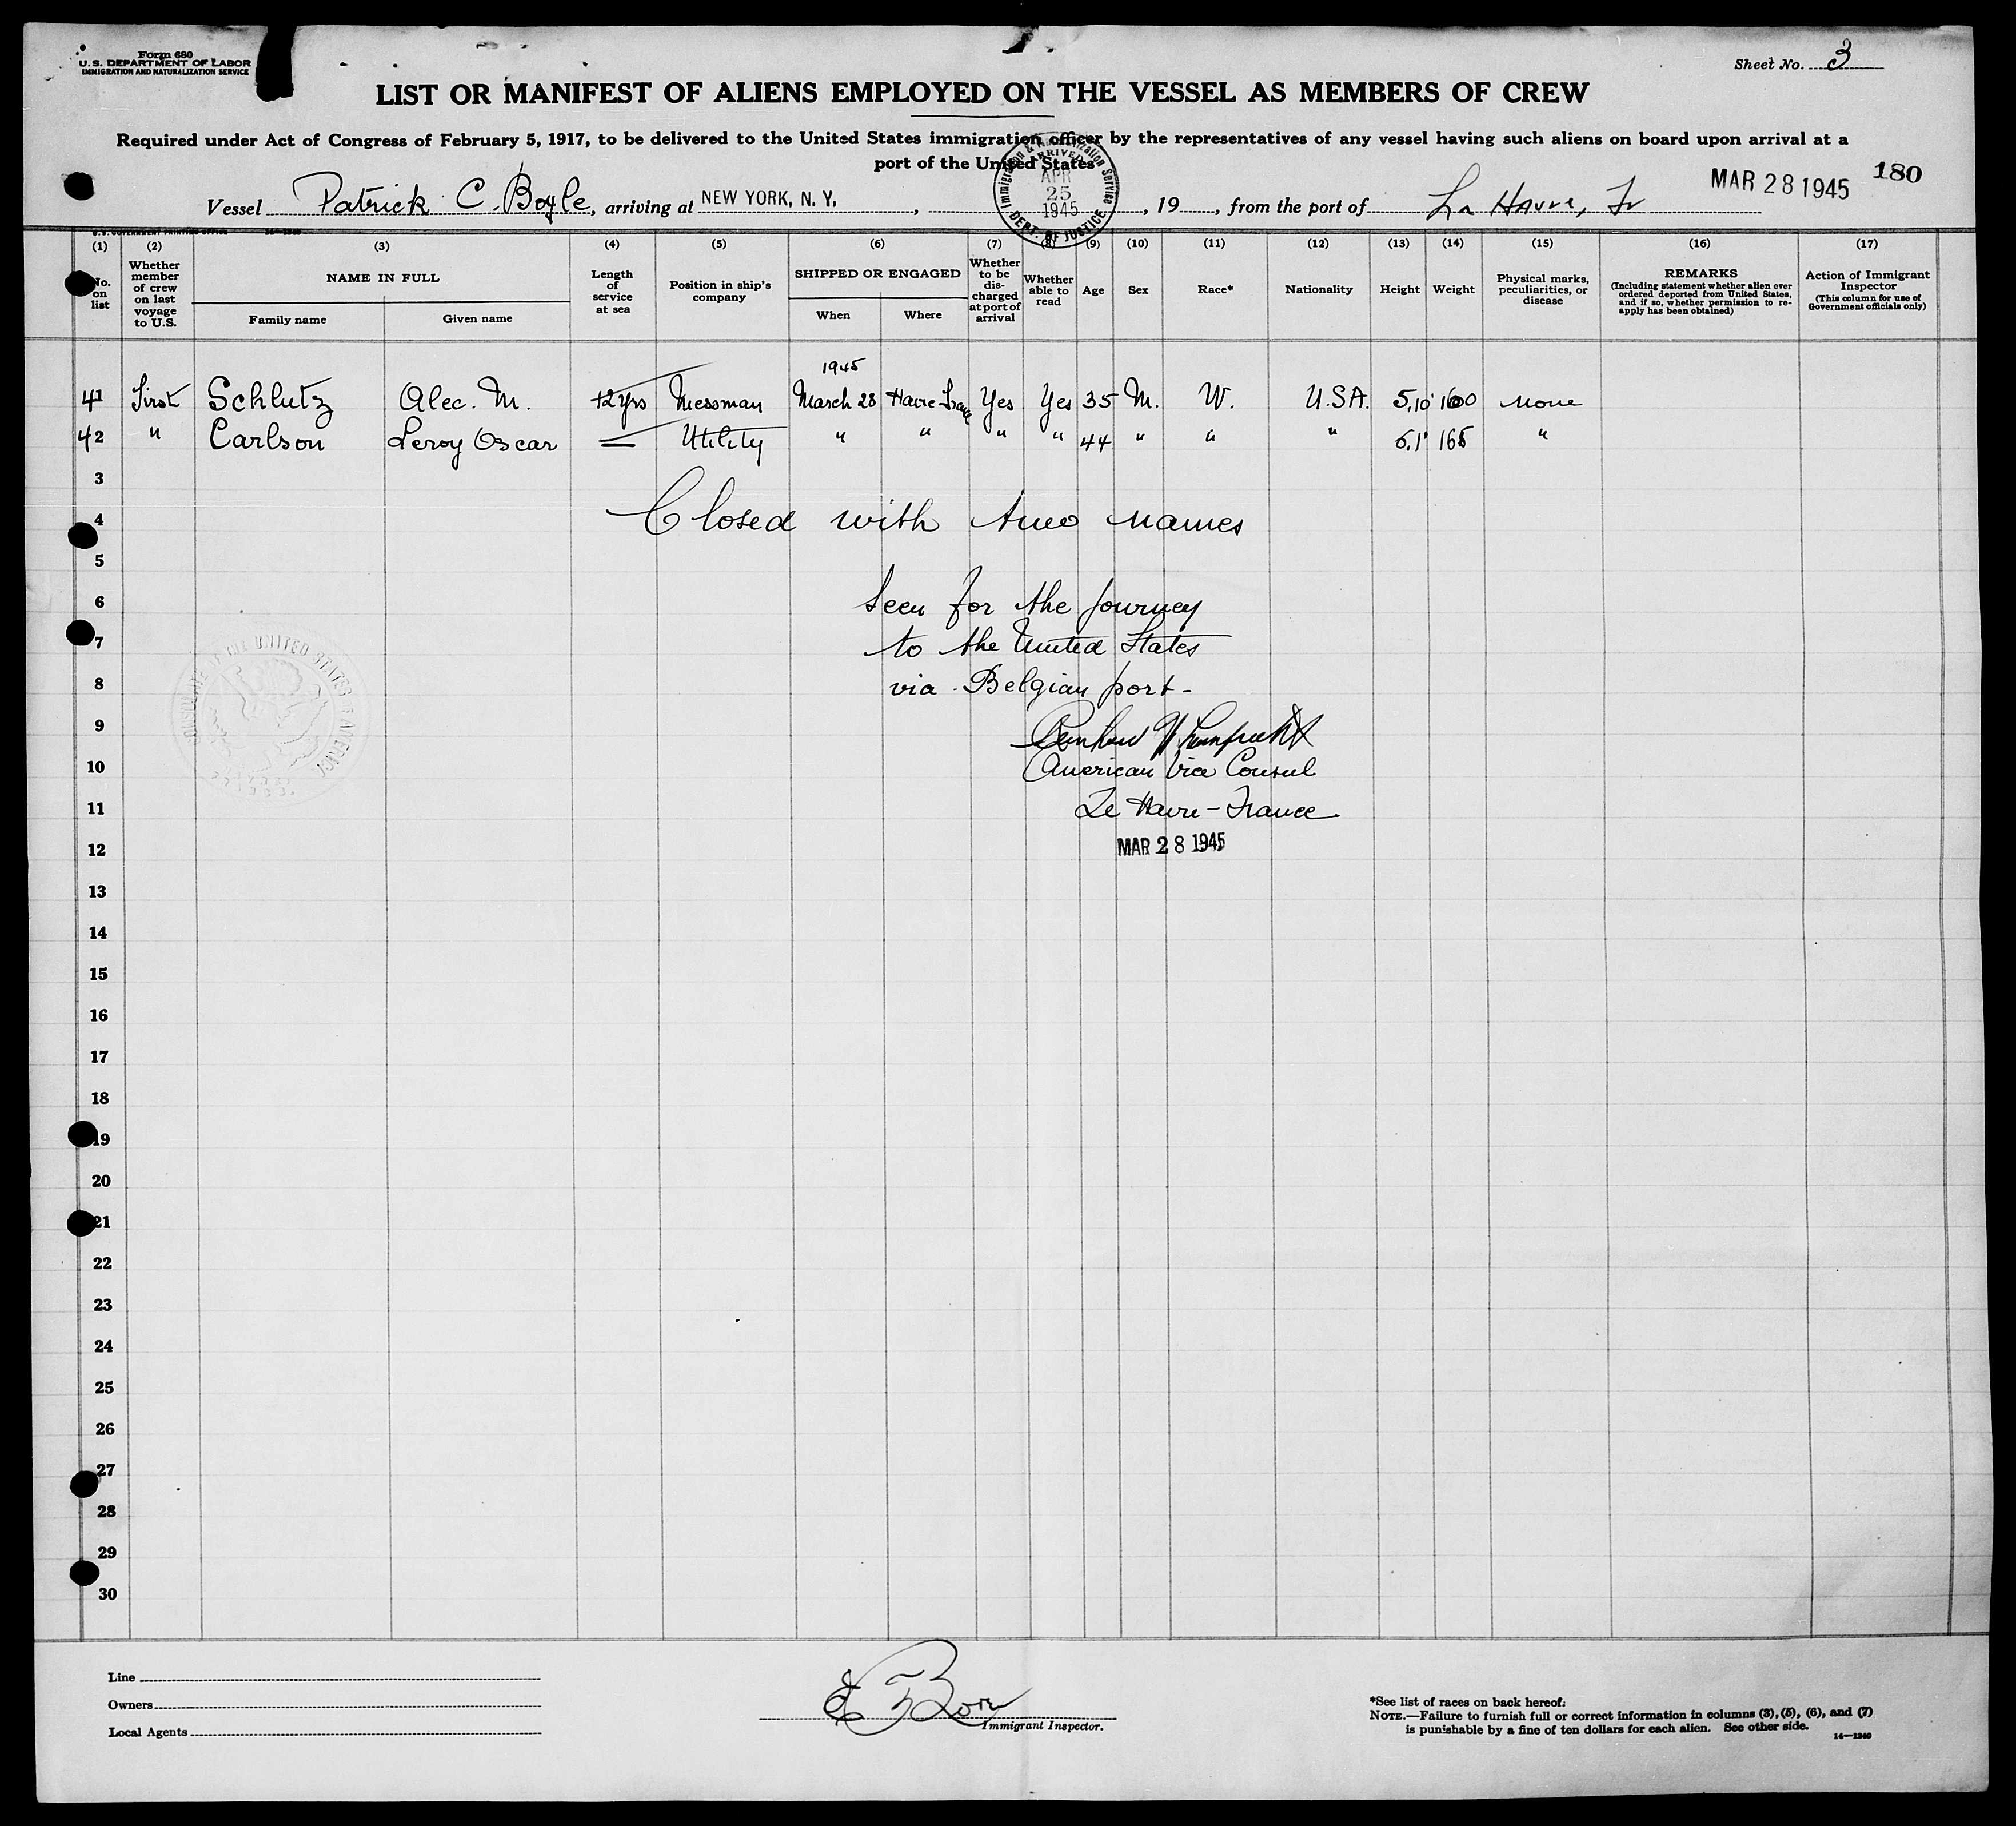 Form 680
U. S. DEPARTMENT OF LABOR
IMMIGRATION AND NATURALIZATION SERVICE
Sheet No. 3
LIST OR MANIFEST OF ALIENS EMPLOYED ON THE VESSEL AS MEMBERS OF CREW
Required under Act of Congress of February 5, 1917, to be delivered to the United States immigration officer by the representatives of any vessel having such aliens on board upon arrival at a
port of the United States
Immigration & Naturalization Service
ARRIVED
APR
25
1945
DEPT. OF JUSTICE
MAR 28 1945 180
Vessel Patrick C. Boyle, arriving at NEW YORK, N. Y., , 19 , from the port of Le Havre, Fr
U. S. GOVERNMENT PRINTING OFFICE
(1) (2) (3) (4) (5) (6) (7) (8) (9) (10) (11) (12) (13) (14) (15) (16) (17)
No. on list
Whether member of crew on last voyage to U.S.
NAME IN FULL
Family name Given name
Length of service at sea
Position in ship's company
SHIPPED OR ENGAGED
When Where
Whether to be discharged at port of arrival
Whether able to read
Age
Sex
Race*
Nationality
Height
Weight
Physical marks, peculiarities, or disease
REMARKS
(Including statement whether alien ever ordered deported from United States, and if so, whether permission to re-apply has been obtained)
Action of Immigrant Inspector
(This column for use of Government officials only)
1945
41 First Schlutz Alec. M. +2yrs Messman March 28 Havre France Yes Yes 35 M. W. U.S.A. 5,10 160 None
42 " Carlson Leroy Oscar — Utility " " " " 44 " " " 5,1 165 "
3
4 Closed with two names
5
6 Seen for the journey
7 to the United States
8 via Belgian port -
9
10 American Vice Consul
11 Le Havre - France
12 MAR 28 1945
13
14
15
16
17
18
19
20
21
22
23
24
25
26
27
28
29
30
Line
Owners
Local Agents
Immigrant Inspector.
*See list of races on back hereof.
NOTE.—Failure to furnish full or correct information in columns (3), (5), (6), and (7)
is punishable by a fine of ten dollars for each alien. See other side.
14—1240